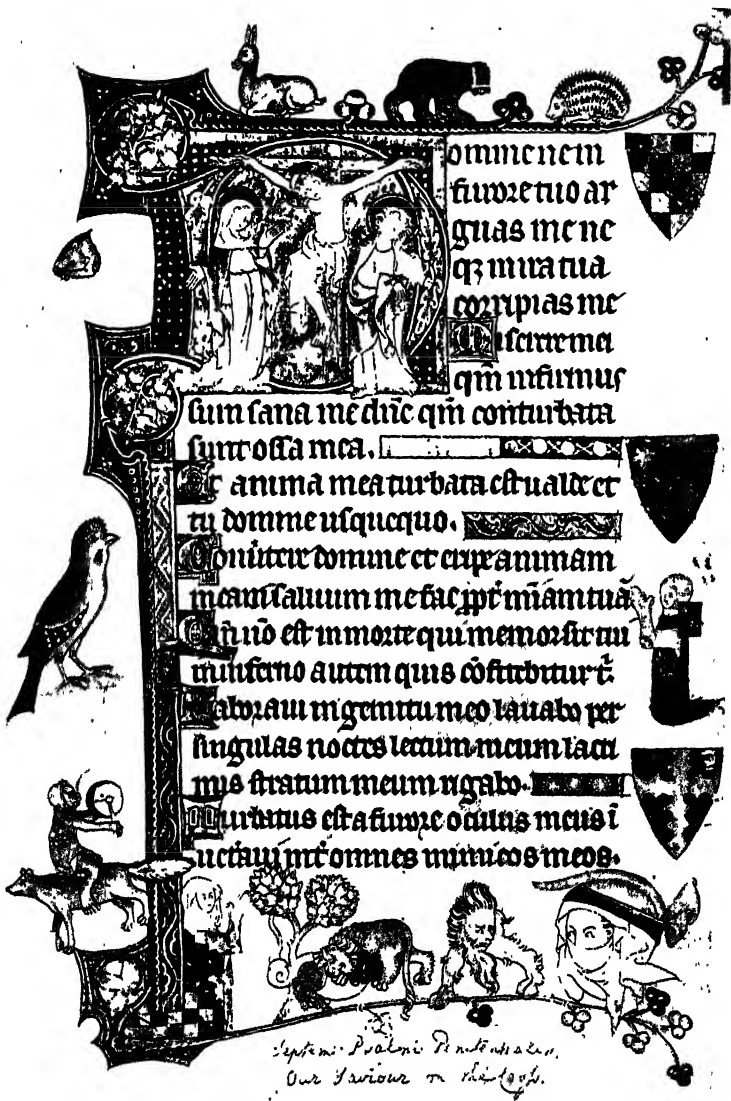 Domine ne in
furore tuo ar
guas me ne
qꝫ in ira tua
corripias me
Miserere mei
qm̄ infirmus
sum sana me dn̄e qm̄ conturbata
sunt ossa mea.
Et anima mea turbata est ualde et
tu domine usquequo.
Conu̓tere domine et eripe animam
meam saluum me fac ꝓpt̓ mīam tuā
Qm̄ nō est in morte qui memor sit tui
in inferno autem quis cōfitebitur t̄.
Laboraui in gemitu meo lauabo per
singulas noctes lectum meum lacri
mis stratum meum rigabo.
Turbatus est a furore oculus meus ī
uet̓aui int̓ omnes inimicos meos.
Septem Psalmi Penitentiales.
Our Saviour on the Cross.